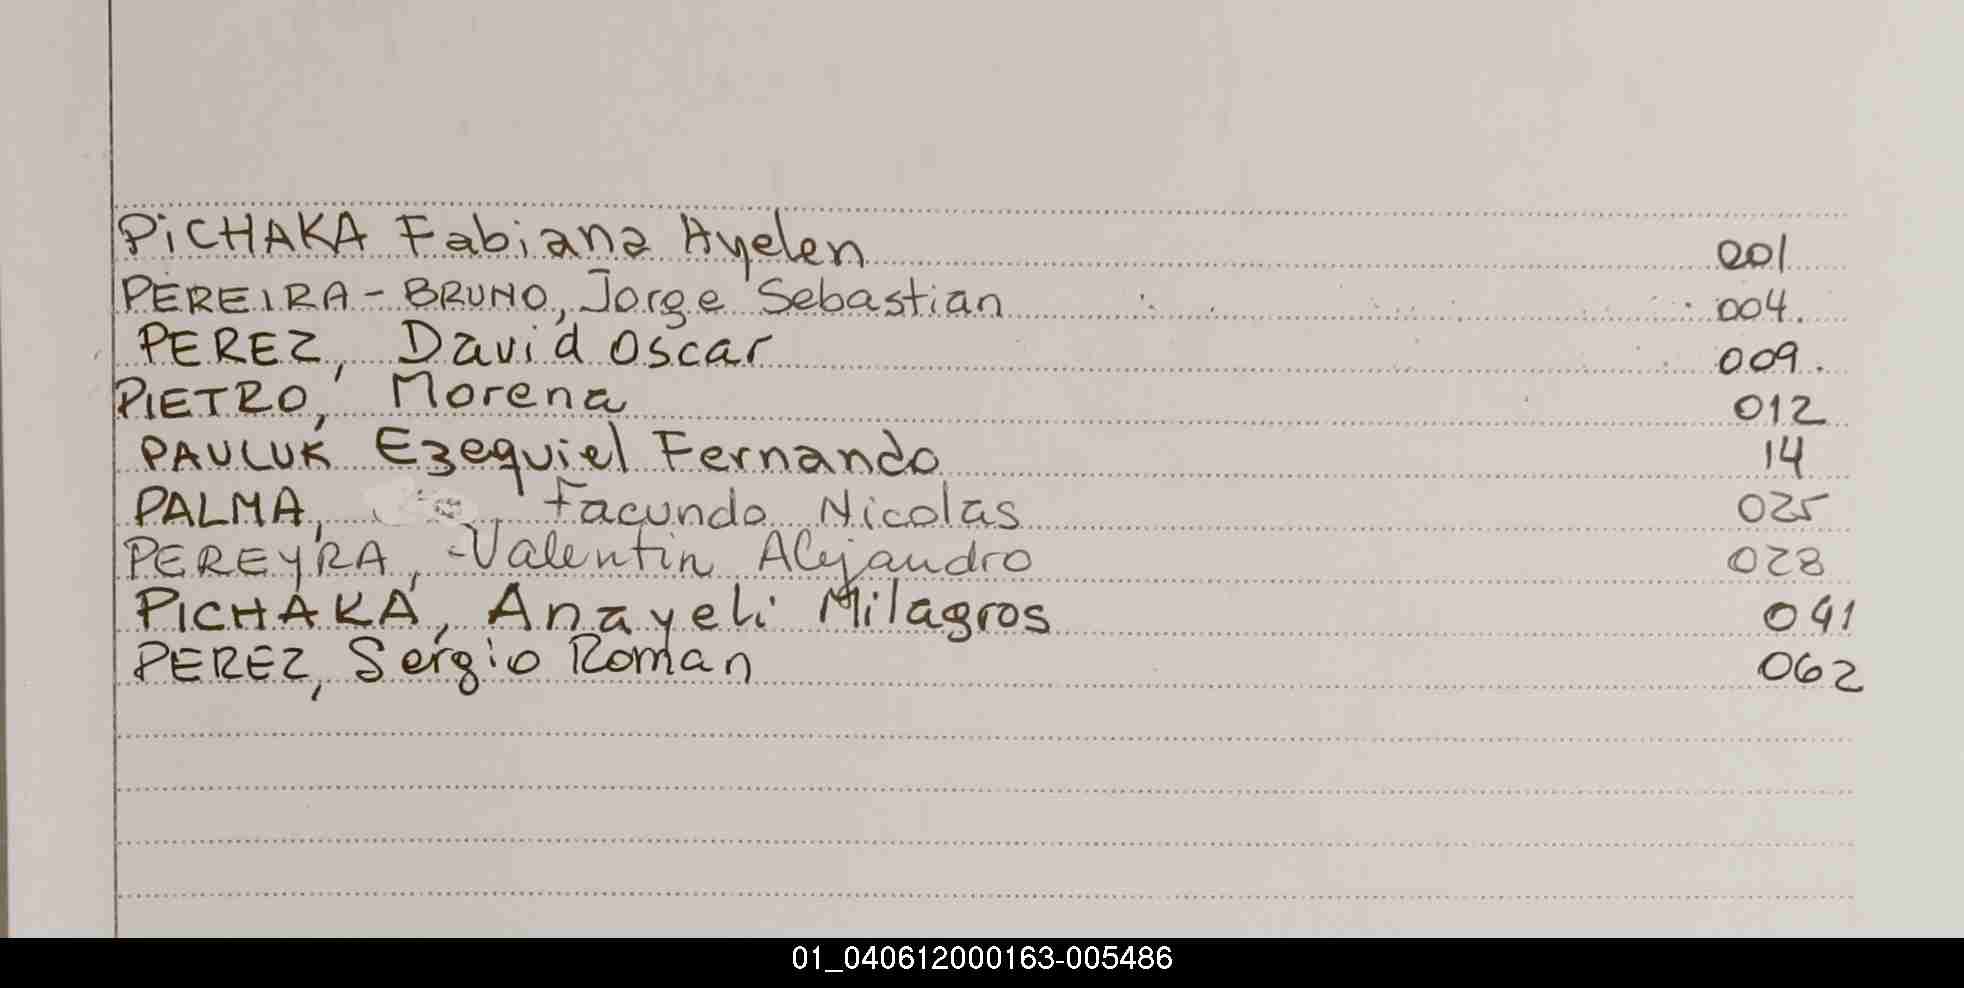 PICHAKA Fabiana Ayelen 001
PEREIRA - BRUNO, Jorge Sebastian 004.
PEREZ, David Oscar 009.
PIETRO, Morena 012
PAULUK Ezequiel Fernando 14
PALMA, Facundo Nicolas 025
PEREYRA, Valentin Alejandro 028
PICHAKA, Anayeli Milagros 041
PEREZ, Sergio Roman 062
01_040612000163-005486